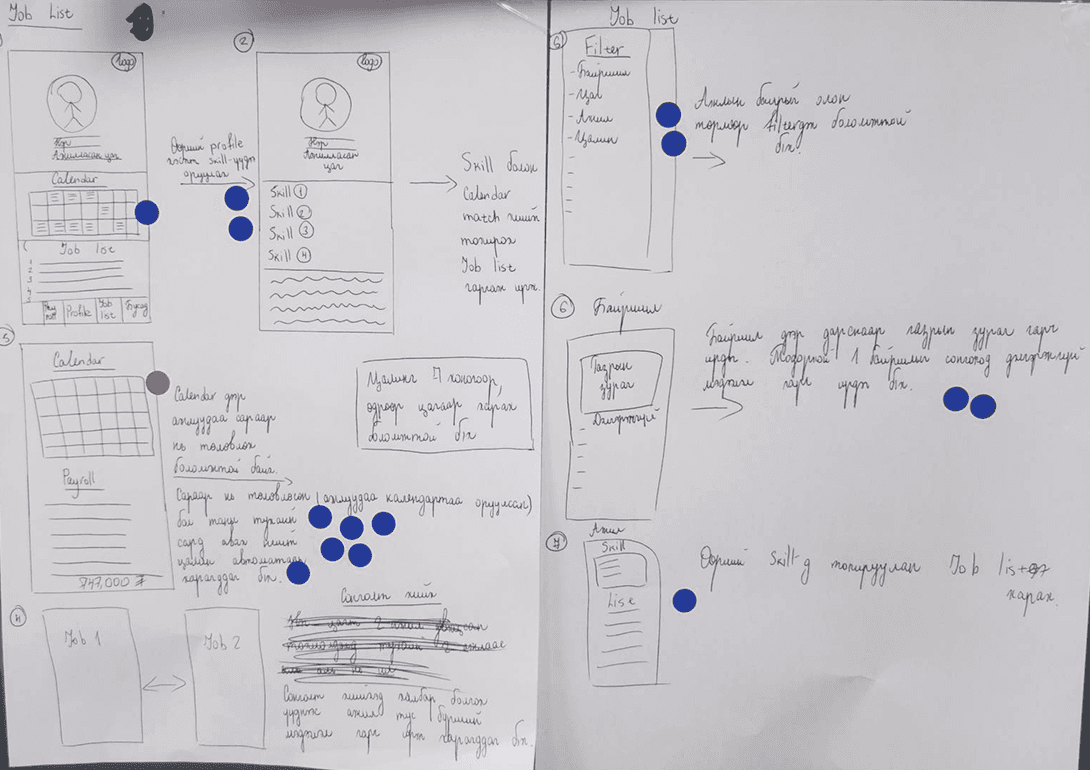 Job List
logo
Нэр
Ажилласан цаг
Calendar
Job list
1
2
3
4
5
Profile
Job list
Бусад
Өөрийн profile
хэсэгт skill-үүдээ
оруулах
2
logo
Нэр
Ажилласан
цаг
Skill 1
Skill 2
Skill 3
Skill 4
Skill болон
Calendar
match хийж
тохирох
Job list
гаргаж ирж.
5
Calendar
Payroll
747,000 ₮
Calendar дээр
ажлуудаа сараар
нь төлөвлөх
боломжтой байх.
Цалинг 7 хоногоор,
өдрөөр цагаар харах
боломжтой бх
Сараар нь төлөвлөсөн (ажлуудаа календартаа оруулсан)
бол таны тухайн
сард авах нийт
цалин автоматаар
харагддаг бх.
4
Job 1
Job 2
Сонголт хийх
Сонголт хийхэд хялбар болгох
үүднээс ажил тус бүрийн
мэдээлэл гарч ирж харагддаг бх.
Job list
6
Filter
- Байршил
- Цаг
- Ажил
- Цалин
Ажлын байрыг олон
төрлөөр filterдэх боломжтой
бх.
6
Байршил
Газрын
зураг
Дэлгэрэнгүй
Байршил дээр дарснаар газрын зураг гарч
ирдэг. Тодорхой 1 байршлыг сонгоход дэлгэрэнгүй
мэдээлэл гарч ирдэг бх.
7
Ажил
Skill
List
Өөрийн Skillд тохируулан Job list
харах.